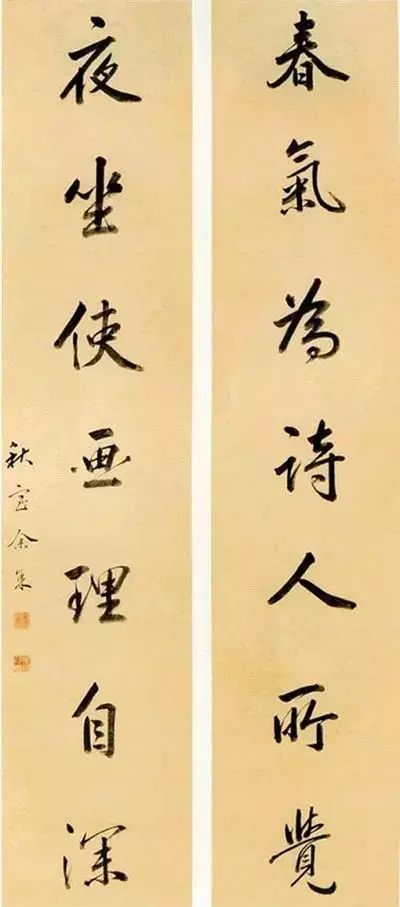 春氣為詩人所覺
夜坐使画理自深
秋室余集